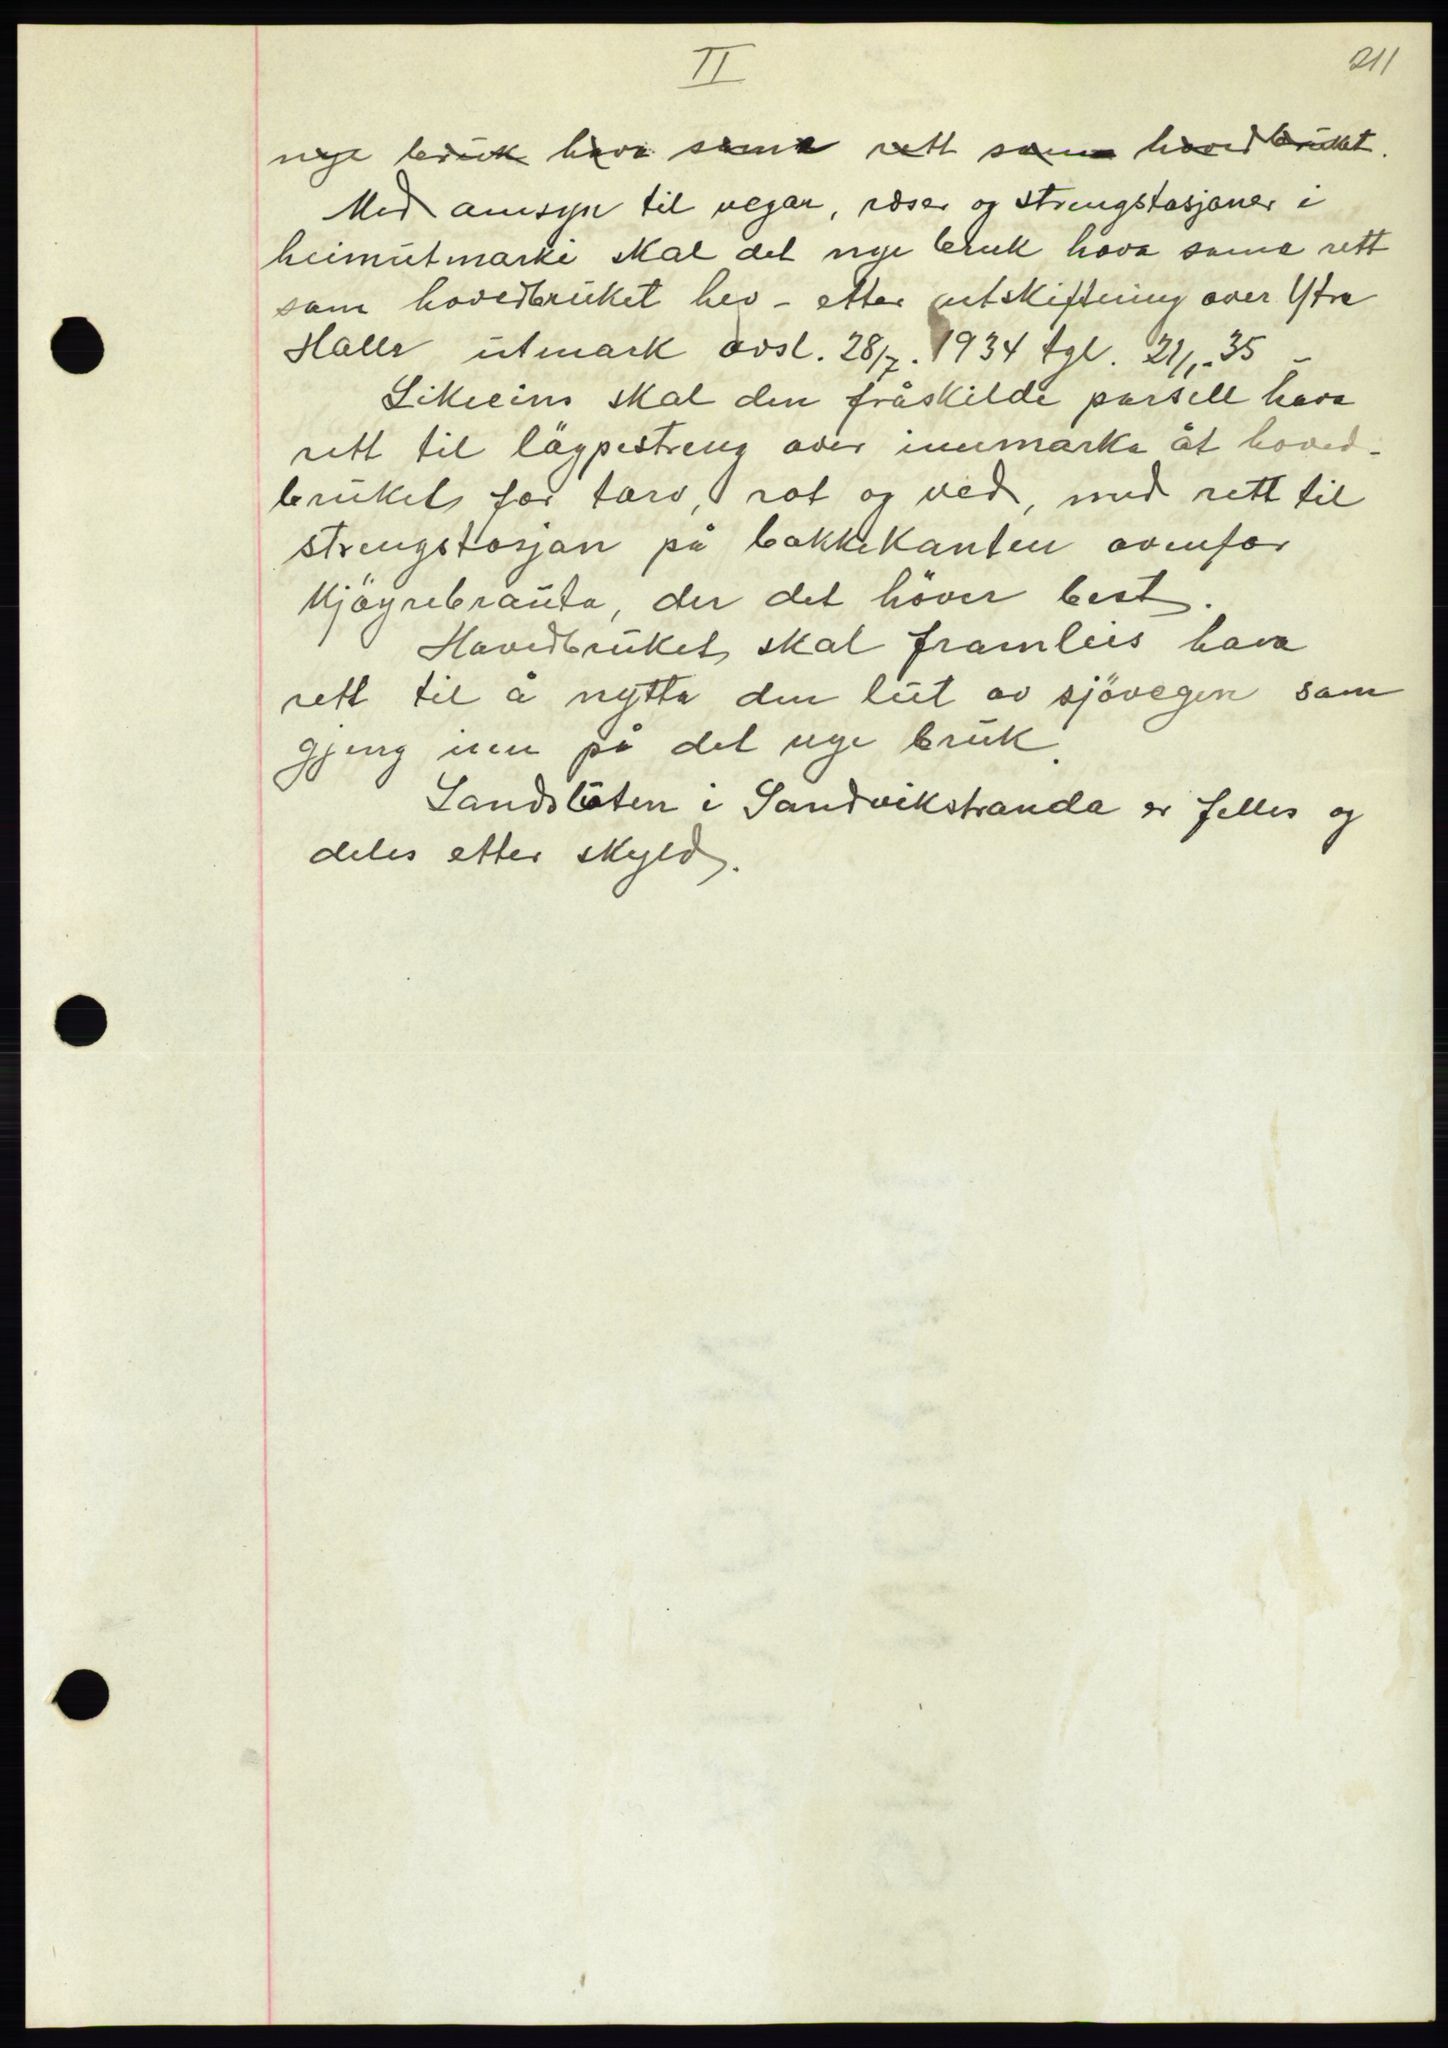 II
211
nye bruk hava sama rett som hovedbruket.
Med omsyn til vegar, røser og strengstasjoner i
heimutmarki skal det nye bruk hava sama rett
som hovedbruket hev - etter utskiftning over Ytre
Halls utmark avsl. 28/7. 1934 tgl. 21/1-35 –
Likeeins skal den fråskilde parsell hava
rett til löypestreng over innmarka åt hoved-
bruket for torv, rot og ved, med rett til
strengstasjon på bakkekanten ovenfor
Mjöyrebrauta, der det höver best.
Hovedbruket skal framleis hava
rett til å nytta den lut av sjövegen som
gjeng inn på det nye bruk.
Landslåten i Sandvikstranda er felles og
deles etter skyld.